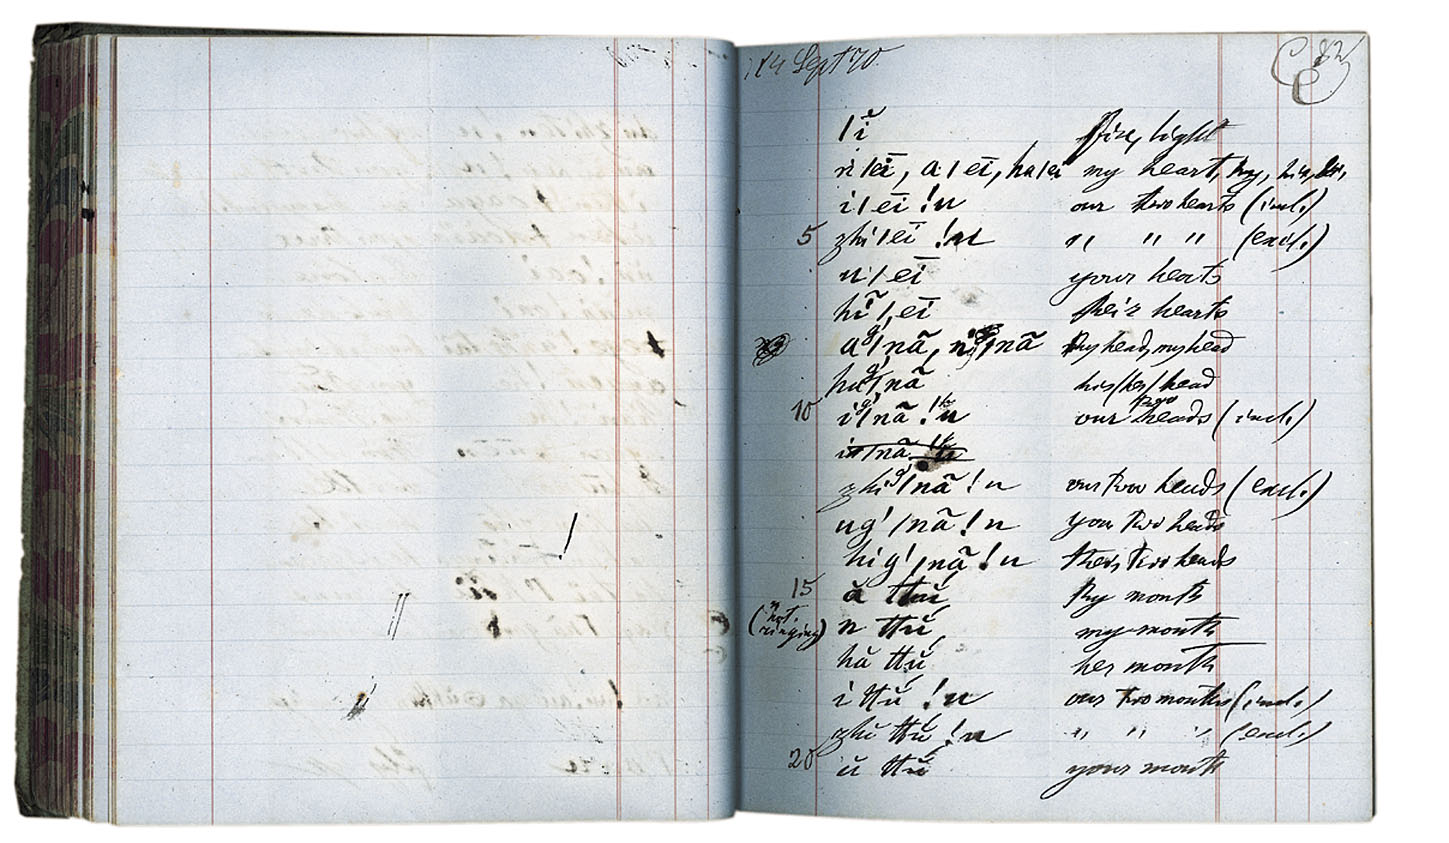 Sept 70
|ĭ fire, light
n|eī, a|eī, ha|eī my heart, thy, his, her,
i|eī !u our two hearts (incl.)
5 zhi|eī !u " " " (excl.)
u|eī your hearts
hĭ|eī their hearts
ag'|nã, |nã thy head, my head
hag'|nã his/her/head
10 ig'|nã !hu our two heads (incl.)
i|nã !hu
zhig'|nã !u our two heads (excl.)
ug'|nã !u your two heads
hig'|nã !u their two heads
15 ă ttŭ, thy mouth
(n not ringing) n ttŭ, my mouth
hă ttŭ, her mouth
i ttŭ, !u our two mouths (incl.)
zhĭ ttŭ, !u " " " (excl.)
20 ŭ ttŭ your mouth